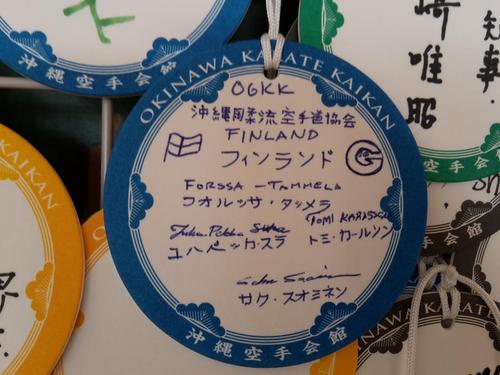 OKINAWA KARATE KAIKAN
OGKK
沖縄剛柔流空手道協会
FINLAND
フィンランド
FORSSA - TAMMELA
フオルッサ・タッメラ
TOMI
ユハペッカ・スラ トミ・カールソン
サク・スオミネン
沖縄空手会館
沖縄空手会館
崎唯昭
知事
KAIKAN
OKINAWA KARA